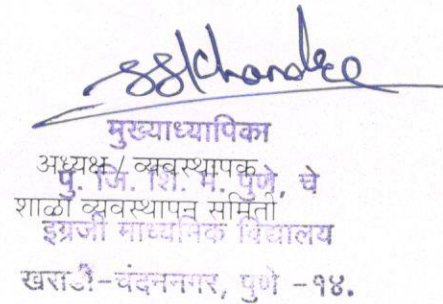 मुख्याध्यापिका
अध्यक्ष / व्यवस्थापक
पु. जि. शि. मं. पुणे, चे
शाळा व्यवस्थापन समिती
इंग्रजी माध्यमिक विद्यालय
खराडी-चंदननगर, पुणे -१४.